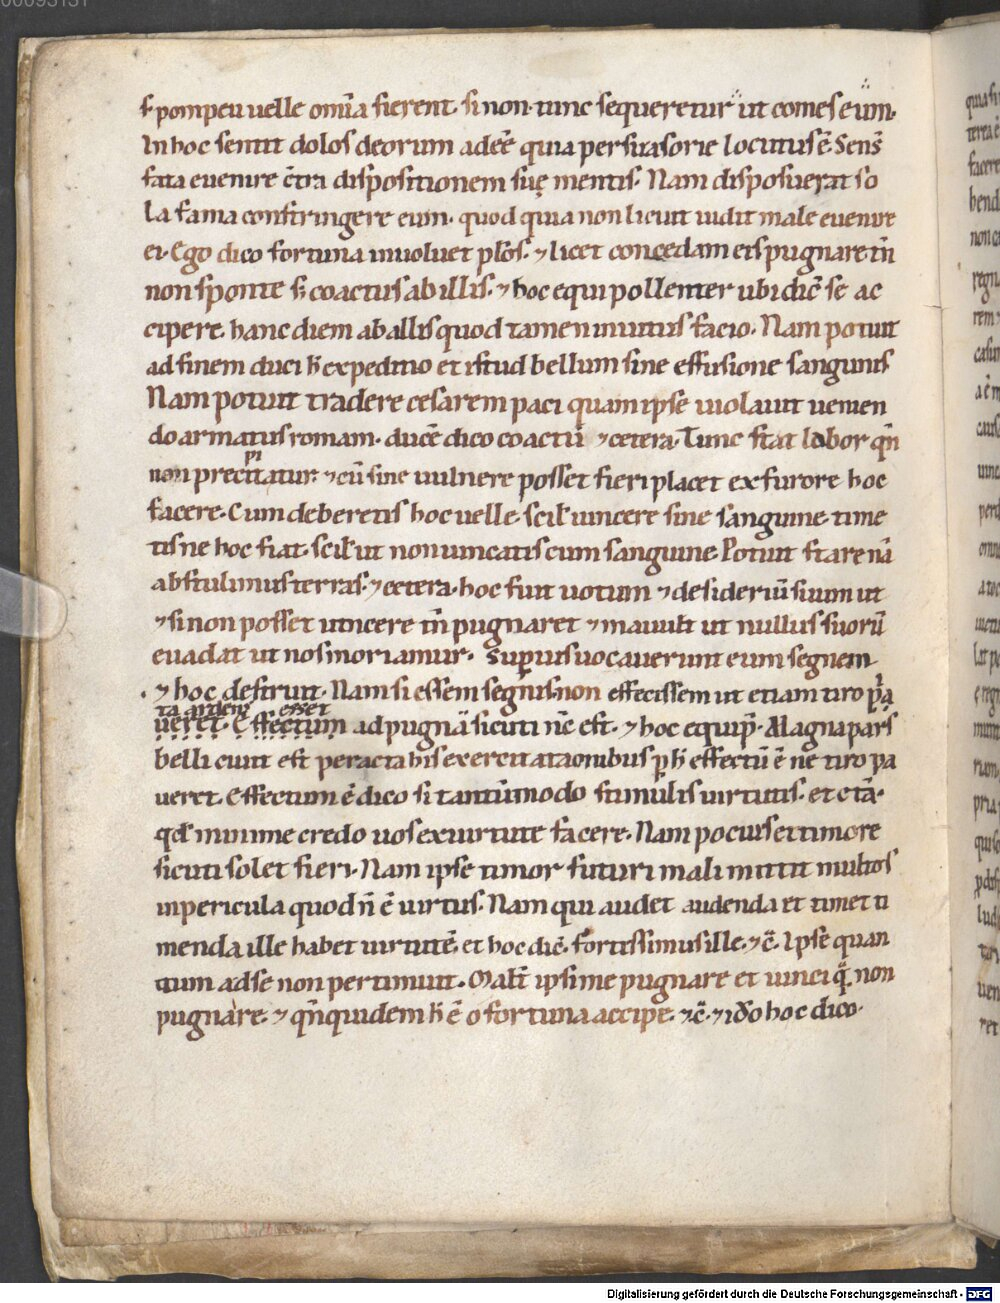 00093131
s. pompeu uelle om̄ia fierent. si non tunc sequeretur ut comes eum.
In hoc sentit dolos deorum adeē quia persuasorie locutus ē. Sens̄
fata euenire c̄tra dispositionem suę mentis. Nam disposuerat so
la fama confringere eum. quod quia non licuit uidit male euenire
ei. Ego dico fortuna inuoluet pl̄os. ⁊ licet concedam eis pugnare. tn̄
non sponte s; coactus ab illis. ⁊ hoc equipollenter ubi dic̄ se ac
cipere. hanc diem ab allis quod tamen inuitus facio. Nam potuit
ad finem duci h̄ expeditio et istud bellum sine effusione sanguinis
Nam potuit tradere cesarem paci quam ipse uiolauit uenien
do armatus romam. ducē dico coactū ⁊ cetera. Tunc stat labor qn̄
non precipitatur. ⁊ cū sine uulnere posset fieri placet ex furore hoc
facere. Cum deberetis hoc uelle. scil̄ uincere sine sanguine. time
tis ne hoc fiat. scil̄ ut non uincatis cum sanguine. Potuit stare nā
abstulimus terras. ⁊ cetera. hoc fuit uotum ⁊ desideriū suum ut
⁊ si non posset uincere tn̄ pugnaret ⁊ mauult ut nullus suorū
euadat ut nos moriamur. Superius uocauerunt eum segnem
. ⁊ hoc destruit. Nam si essem segnis non effecissem ut etiam tiro p̄a
ta ardens esset
ueret. Effectum ad pugnā sicuti nc̄ est. ⁊ hoc equip̄. Magna pars
belli cunt est peracta his exercitationibus p h̄ effectū ē ne tiro pa
ueret. Effectum ē dico si tantūmodo stimulis uirtutis. et c̄tā.
qd̄ minime credo uos ex uirtute facere. Nam pocius ex timore
sicuti solet fieri. Nam ipse timor futuri mali mittit multos
in pericula quod n̄ ē uirtus. Nam qui audet audenda et timet ti
menda ille habet uirtutē. et hoc dic̄. fortissimus ille. ⁊c̄. Ipse quan
tum ad se non pertimuit. Malt̄ ipsi me pugnare et uinci q̄ non
pugnare. ⁊ qn̄quidem h̄ ē o fortuna accipe. ⁊c̄. ⁊ id̄o hoc dico.
Digitalisierung gefördert durch die Deutsche Forschungsgemeinschaft - DFG